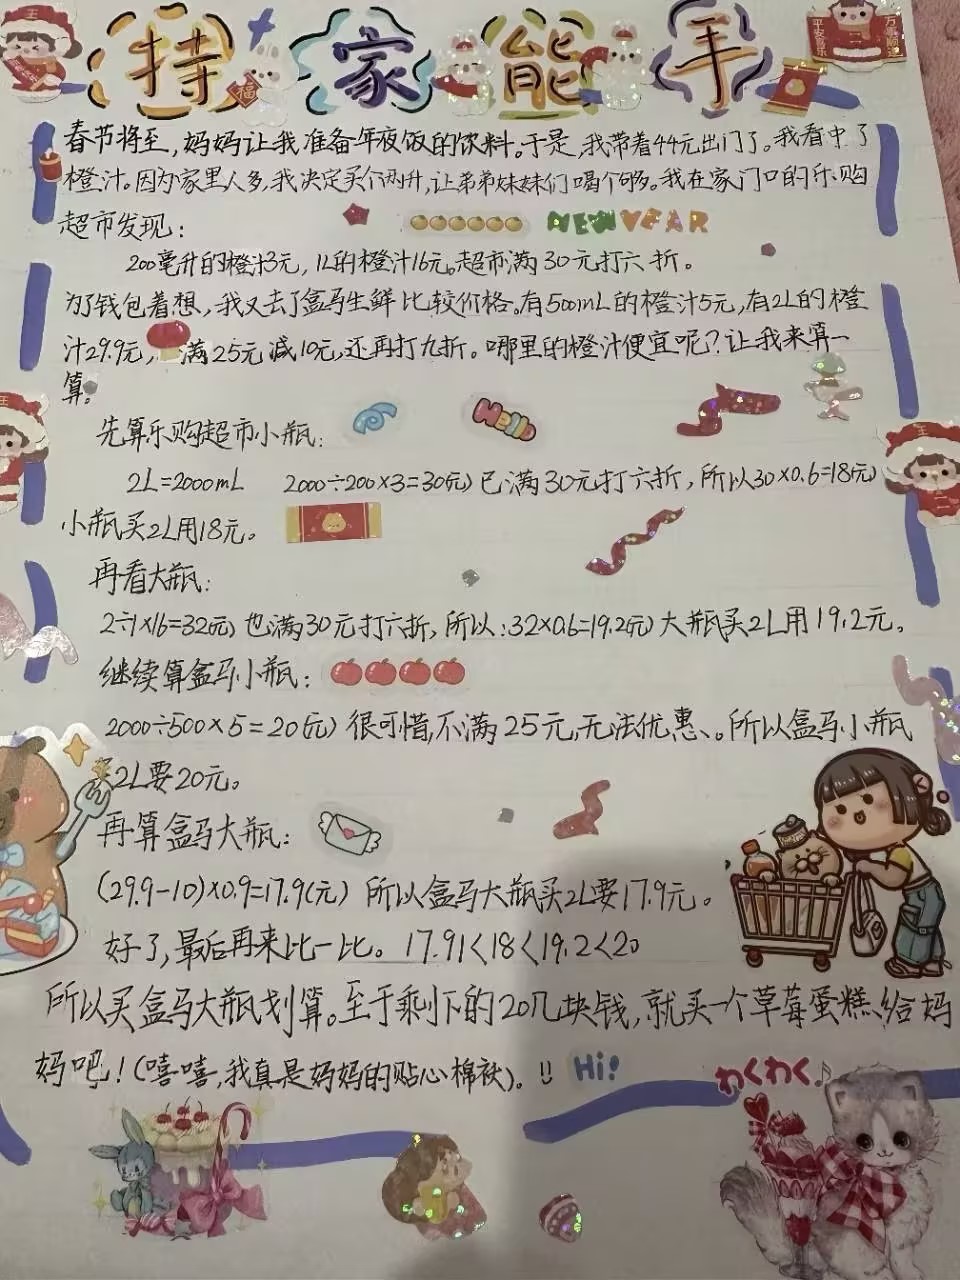 持家能手
平安喜乐
万事顺遂
福
春节将至，妈妈让我准备年夜饭的饮料。于是，我带着44元出门了。我看中了
橙汁。因为家里人多，我决定买个两升，让弟弟妹妹们喝个够。我在家门口的乐购
超市发现：
NEW YEAR
200毫升的橙汁3元，1L的橙汁16元。超市满30元打六折。
为了钱包着想，我又去了盒马生鲜比较价格。有500mL的橙汁5元，有2L的橙
汁29.9元，满25元减10元，还再打九折。哪里的橙汁便宜呢？让我来算一
算。
Hello
先算乐购超市小瓶：
2L=2000mL 2000÷200×3=30(元) 已满30元打六折，所以30×0.6=18(元)
小瓶买2L用18元。
再看大瓶：
2÷1×16=32(元) 也满30元打六折，所以：32×0.6=19.2(元) 大瓶买2L用19.2元。
继续算盒马小瓶：
2000÷500×5=20(元) 很可惜，不满25元，无法优惠、。所以盒马小瓶
2L要20元。
再算盒马大瓶：
(29.9-10)×0.9=17.9(元) 所以盒马大瓶买2L要17.9元。
好了，最后再来比一比。17.91<18<19.2<20
所以买盒马大瓶划算。至于剩下的20几块钱，就买一个草莓蛋糕给妈
妈吧！(嘻嘻，我真是妈妈的贴心棉袄)。!!
Hi!
わくわく♪